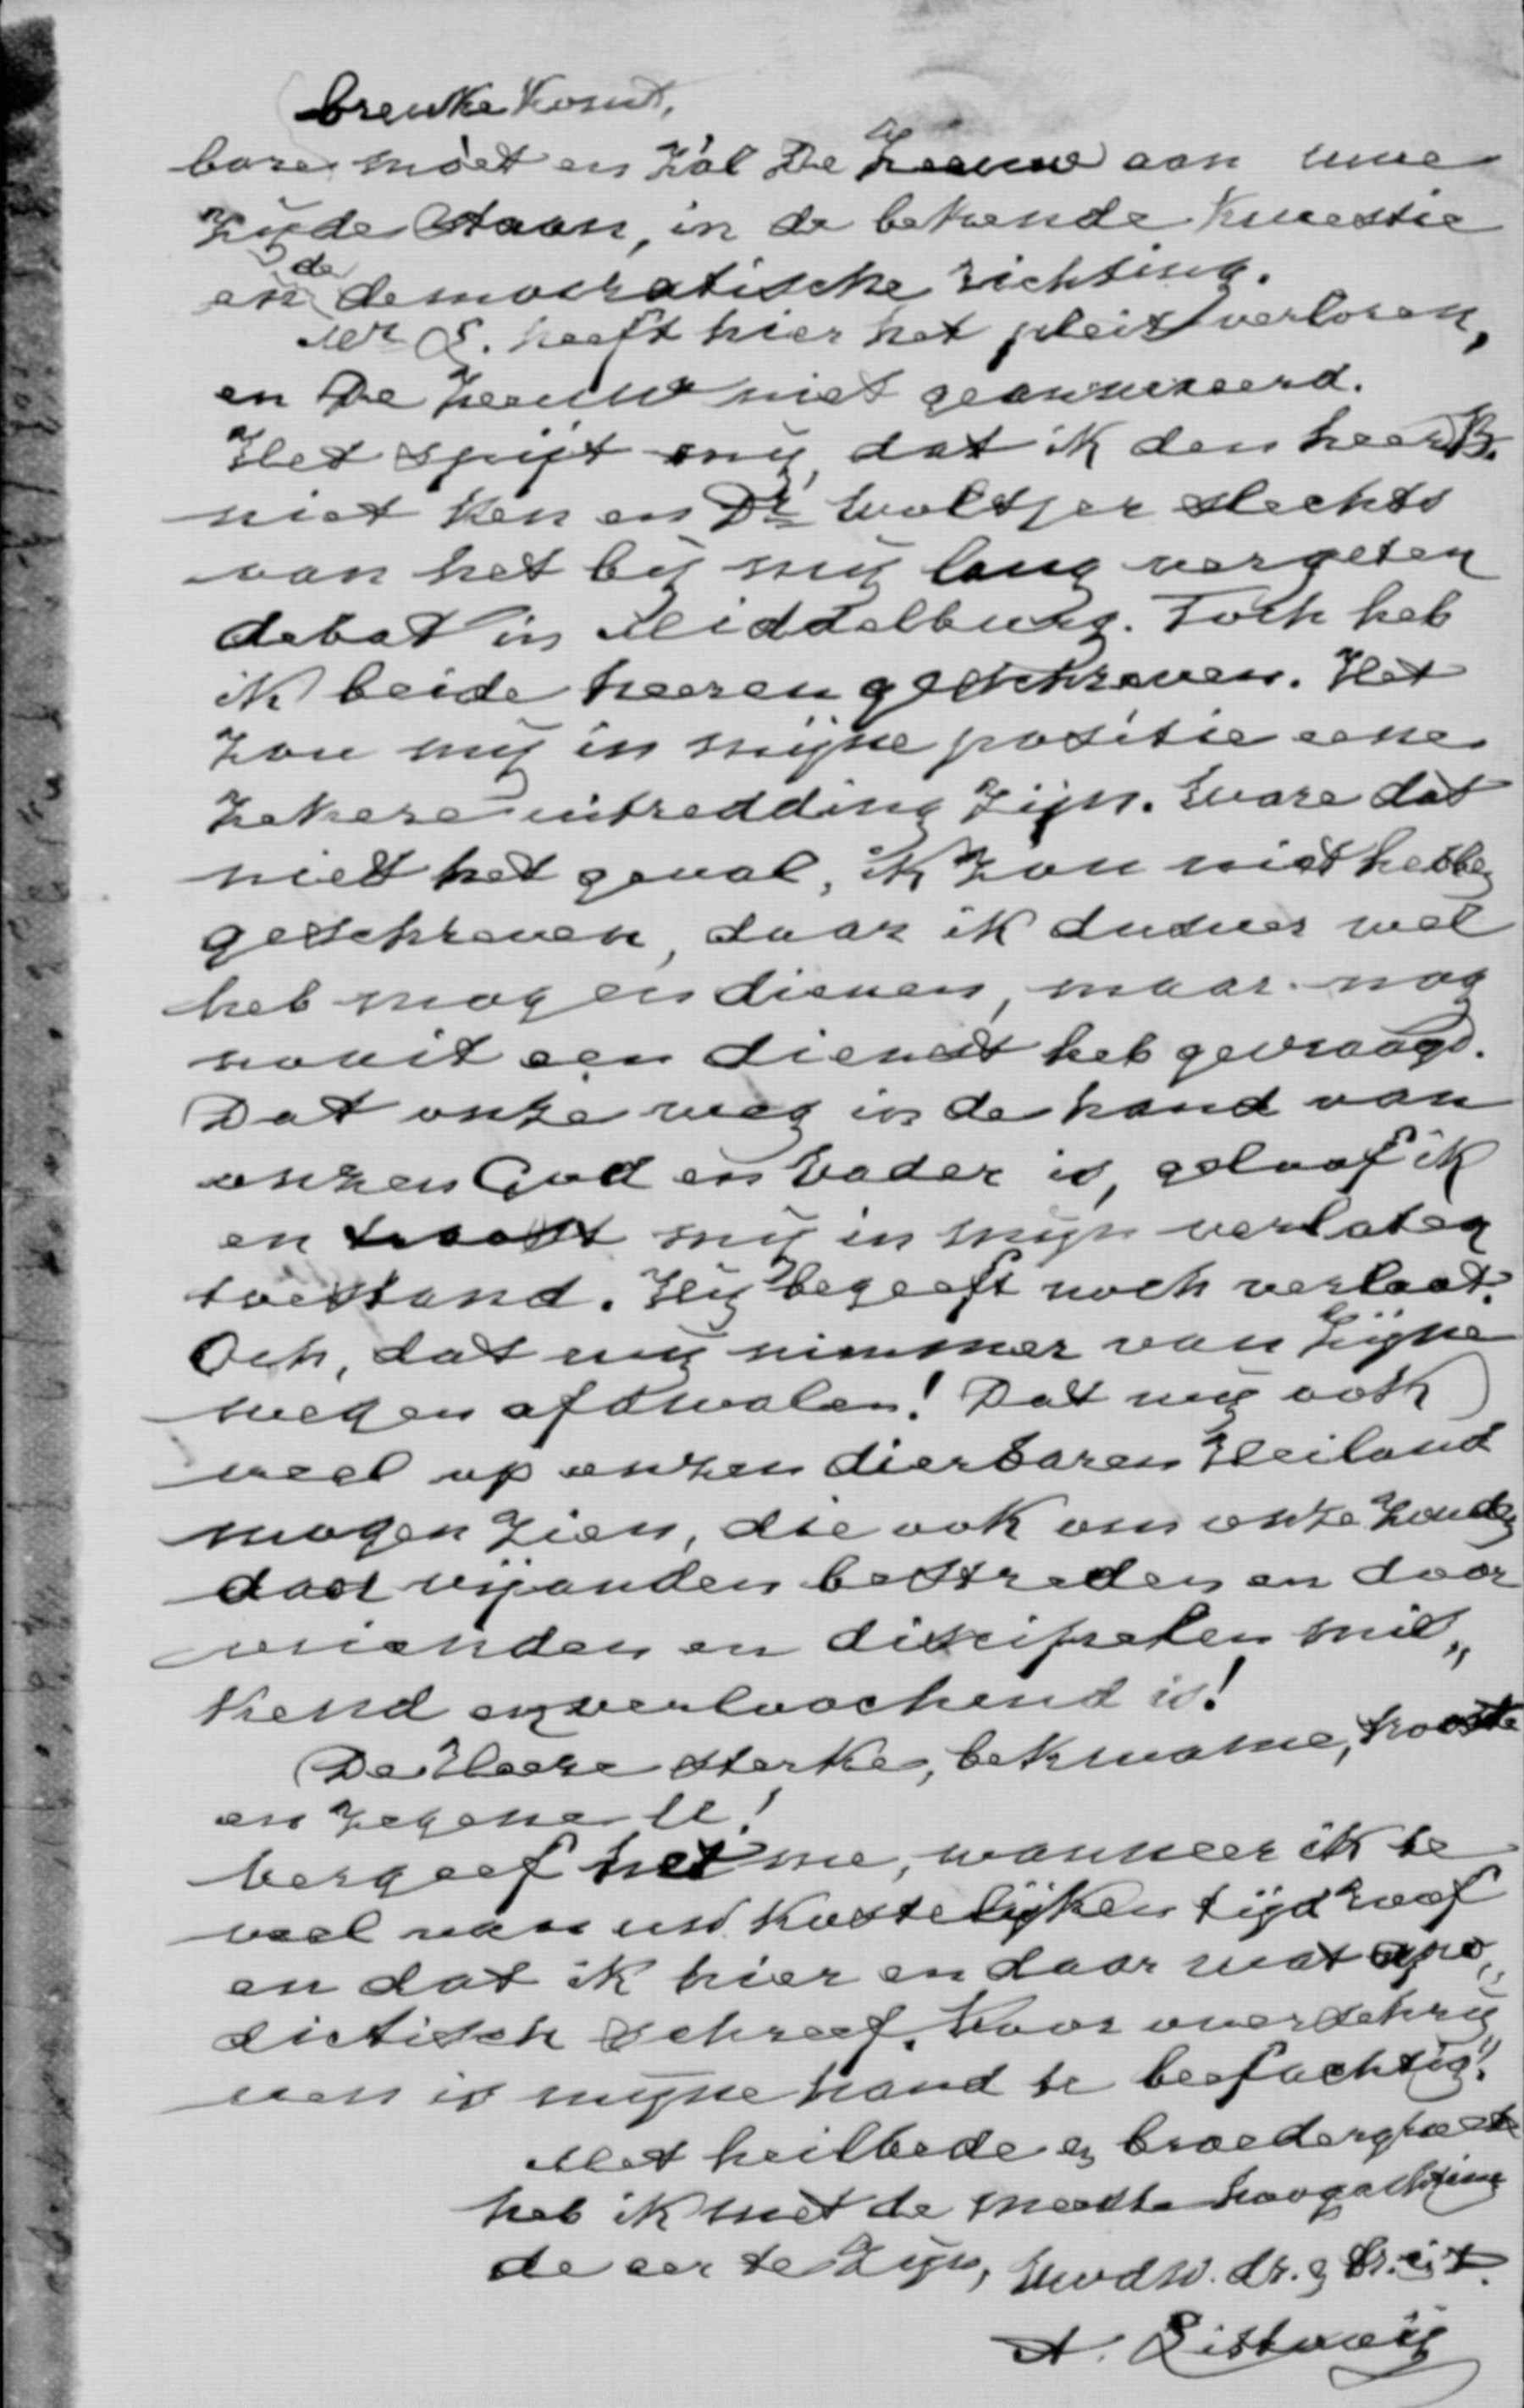 breuke komt,
bare móet en zàl De Zeeuw aan uwe
zijde staan, in de bekende kwestie
en de democratische richting.
Mr S. heeft hier het pleit verloren,
en De Zeeuw niet geannexeerd.
Het spijt mij, dat ik den heer B.
niet ken en Dr Woltjer slechts
van het bij mij lang vergeten
debat in Middelburg. Toch heb
ik beide heeren geschreven. Het
zou mij in mijne positie eene
zekere uitredding zijn. Ware dat
niet het geval, ik zou niet hebben
geschreven, daar ik dusver wel
heb mogen dienen, maar nog
nooit een dienst heb gevraagd.
Dat onze weg in de hand van
onzen God en Vader is, geloof ik
en troost mij in mijn verlaten
toestand. Hij begeeft noch verlaat.
Och, dat wij nimmer van Zijne
wegen afdwalen! Dat wij ook
veel op onzen dierbaren Heiland
mogen zien, die ook om onze zonden
door vijanden bestreden en door
vrienden en discipelen mis„
kend en verloochend is!
De Heere sterke, bekwame, trooste
en zegene U!
Vergeef het me, wanneer ik te
veel van uw kostelijken tijd roof
en dat ik hier en daar wat apo„
dictisch schreef. Voor overschrij„
ven is mijne hand te beefachtig.
Met heilbede en broedergroete
heb ik met de meeste hoogachting
de eer te zijn, Uwdw. dr. en br. i/t.
A. Littooij